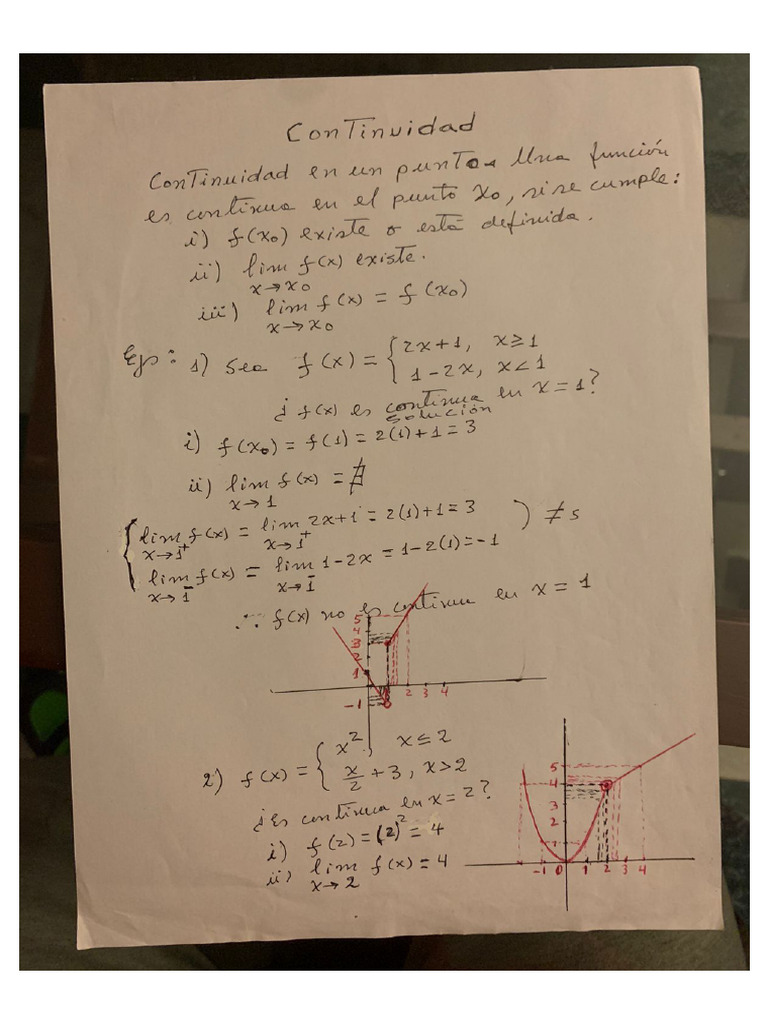 Continuidad
Continuidad en un punto. Una función
es continua en el punto x₀, si se cumple:
i) f(x₀) existe o está definida.
ii) lim f(x) existe.
x→x₀
iii) lim f(x) = f(x₀)
x→x₀
Ejs: 1) Sea f(x) = { 2x+1, x≥1
1-2x, x<1
¿ f(x) es continua en x = 1?
solución
i) f(x₀) = f(1) = 2(1)+1 = 3
ii) lim f(x) = ∄
x→1
{ lim f(x) = lim 2x+1 = 2(1)+1 = 3 ) ≠s
x→1⁺ x→1⁺
lim f(x) = lim 1-2x = 1-2(1) = -1
x→1⁻ x→1⁻
∴ f(x) no es continua en x = 1
5
4
3
2
1
-1
2 3 4
2) f(x) = { x², x≤2
x/2 + 3, x>2
¿Es continua en x = 2?
i) f(2) = (2)² = 4
ii) lim f(x) = 4
x→2
5
4
3
2
1
-1 0 1 2 3 4